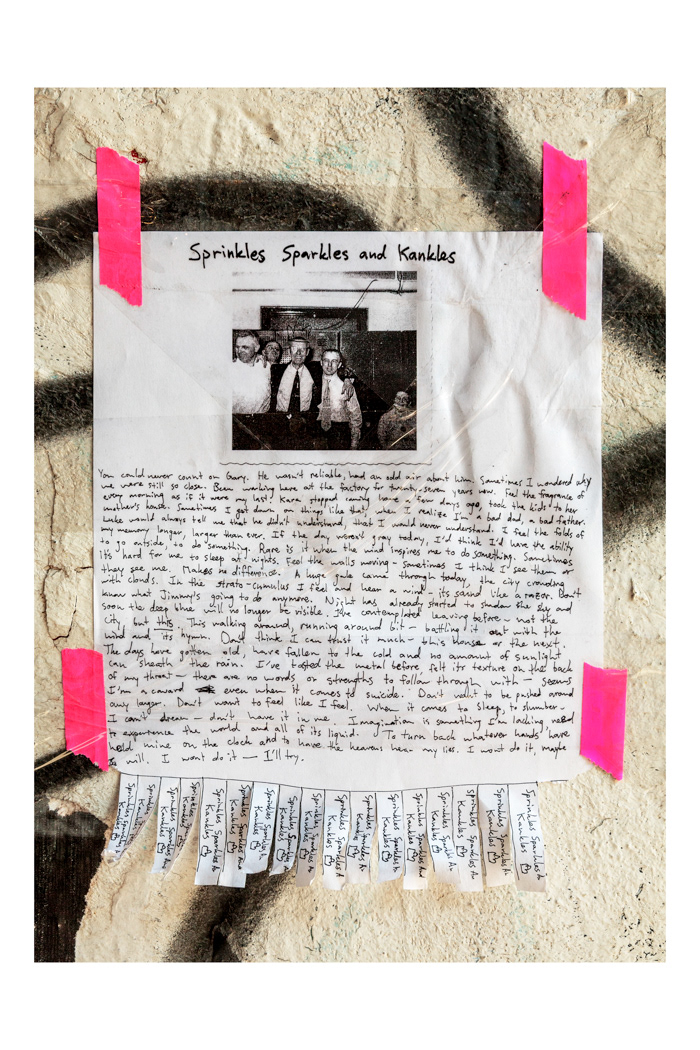 Sprinkles Sparkles and Kankles
You could never count on Gary. He wasn't reliable, had an odd air about him. Sometimes I wondered why
we were still so close. Been working here at the factory for twenty-seven years now. Feel the fragrance of
every morning as if it were my last! Kara stopped coming home a few days ago, took the kids to her
mother's house. Sometimes I get down on things like that, when I realize I'm a bad dad, a bad father.
Luke would always tell me that he didn't understand, that I would never understand. I feel the folds of
my memory longer, larger than ever. If the day weren't gray today, I'd think I'd have the ability
to go outside, to do something. Rare is it when the wind inspires me to do something. Sometimes
it's hard for me to sleep at nights. Feel the walls moving - sometimes I think I see them or
they see me. Makes no difference. A huge gale came through today, the city crowding
with clouds. In the strato-cumulus I feel and hear a wind - its sound like a razor. Don't
know what Jimmy's going to do anymore. Night has already started to shadow the sky and
soon the deep blue will no longer be visible. I've contemplated leaving before - not the
city, but this. This walking around, running around bit - battling it out with the
wind and its hymn. Don't think I can trust it much - this house or the next.
The days have gotten old, have fallen to the cold and no amount of sunlight
can sheath the rain. I've tasted the metal before felt its texture on the back
of my throat - there are no words or strengths to follow through with - seems
I'm a coward even when it comes to suicide. Don't want to be pushed around
any longer. Don't want to feel like I feel. When it comes to sleep, to slumber -
I can't dream - don't have it in me. Imagination is something I'm lacking need
to experience the world and all of its liquid. To turn back whatever hands have
held mine on the clock and to have the heavens hear my lies. I wont do it, maybe
I will. I wont do it - I'll try.
Sprinkles Sparkles &
Kankles
Sprinkles Sparkles &
Kankles
Sprinkles Sparkles &
Kankles
Sprinkles Sparkles &
Kankles
Sprinkles Sparkles &
Kankles
Sprinkles Sparkles &
Kankles
Sprinkles Sparkles &
Kankles
Sprinkles Sparkles &
Kankles
Sprinkles Sparkles &
Kankles
Sprinkles Sparkles &
Kankles
Sprinkles Sparkles &
Kankles
Sprinkles Sparkles &
Kankles
Sprinkles Sparkles &
Kankles
Sprinkles Sparkles &
Kankles
Sprinkles Sparkles &
Kankles
Sprinkles Sparkles &
Kankles